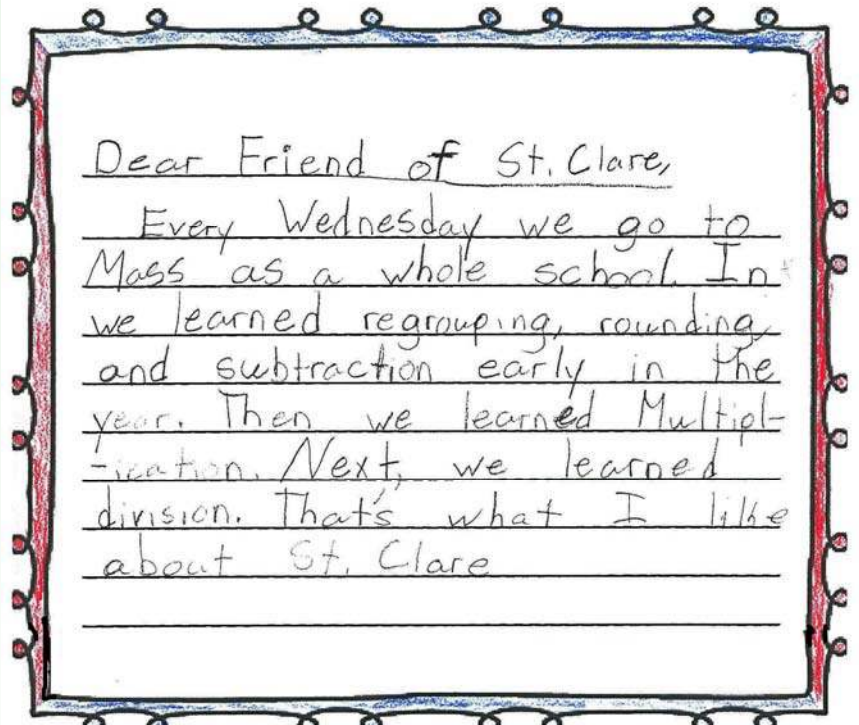 Dear Friend of St. Clare,
Every Wednesday we go to
Mass as a whole school. In
we learned regrouping, rounding,
and subtraction early in the
year. Then we learned Multipl-
-ication. Next, we learned
division. That's what I like
about St. Clare